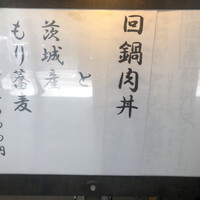 回鍋肉丼
と
茨城産
もり蕎麦
円